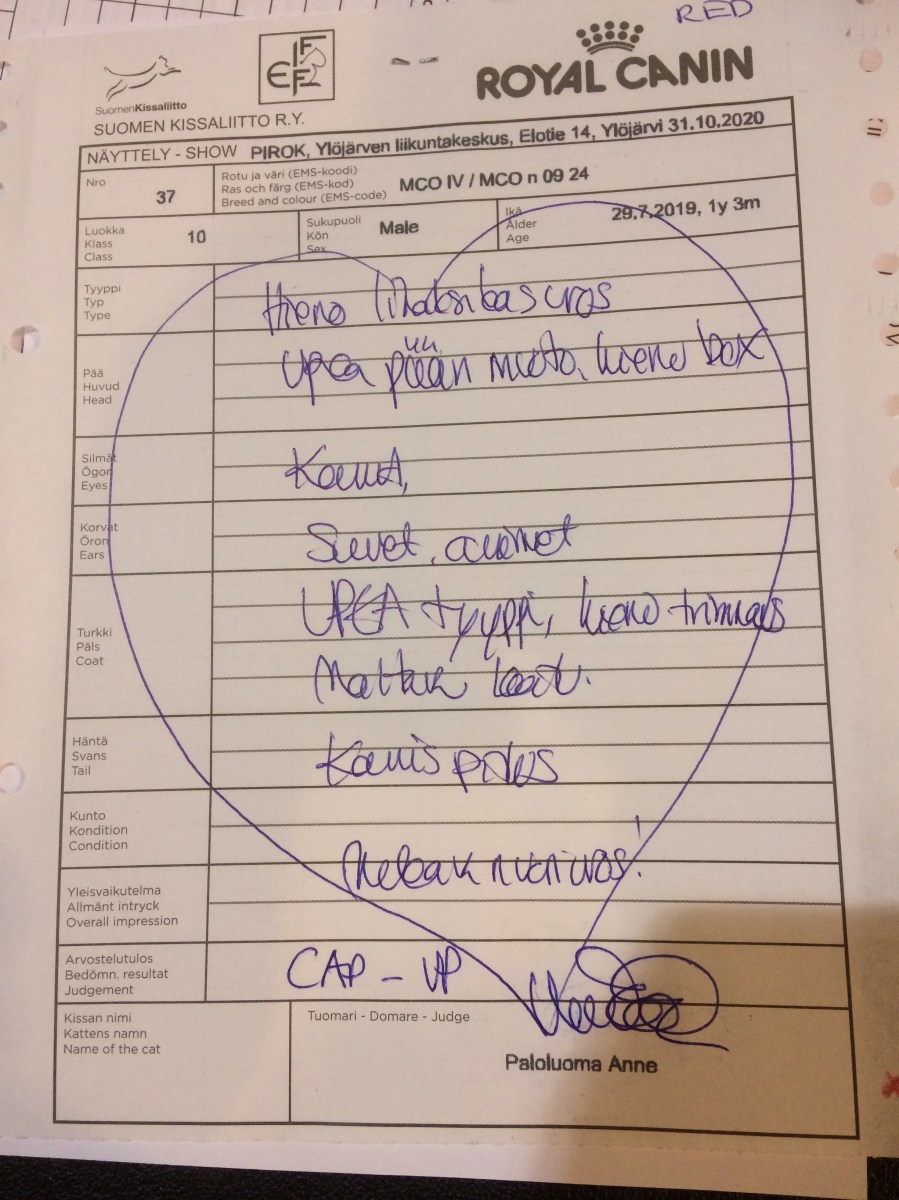 RED
FIFe
SuomenKissaliitto
ROYAL CANIN
SUOMEN KISSALIITTO R.Y.
NÄYTTELY - SHOW PIROK, Ylöjärven liikuntakeskus, Elotie 14, Ylöjärvi 31.10.2020
Nro
37
Rotu ja väri (EMS-koodi)
Ras och färg (EMS-kod)
Breed and colour (EMS-code)
MCO IV / MCO n 09 24
Luokka
Klass
Class
10
Sukupuoli
Kön
Sex
Male
Ikä
Ålder
Age
29.7.2019, 1y 3m
Tyyppi
Typ
Type
Hieno lihaksikas uros
Pää
Huvud
Head
Upea pään muoto, hieno box
Silmät
Ögon
Eyes
Kauniit,
Korvat
Öron
Ears
Suuret, avoimet
Turkki
Päls
Coat
UPEA tyyppi, hieno
Häntä
Svans
Tail
Kaunis
Kunto
Kondition
Condition
Yleisvaikutelma
Allmänt intryck
Overall impression
Arvostelutulos
Bedömn. resultat
Judgement
CAP - VP
Kissan nimi
Kattens namn
Name of the cat
Tuomari - Domare - Judge
Paloluoma Anne